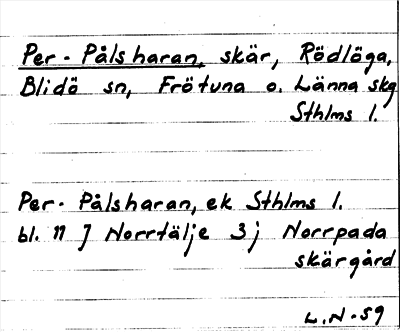 Per-Pålsharan, skär, Rödlöga,
Blidö sn, Frötuna o. Länna skg
Sthlms l.
Per-Pålsharan, ek Sthlms l.
bl. 11 J Norrtälje 3j Norrpada
skärgård
L.N-59